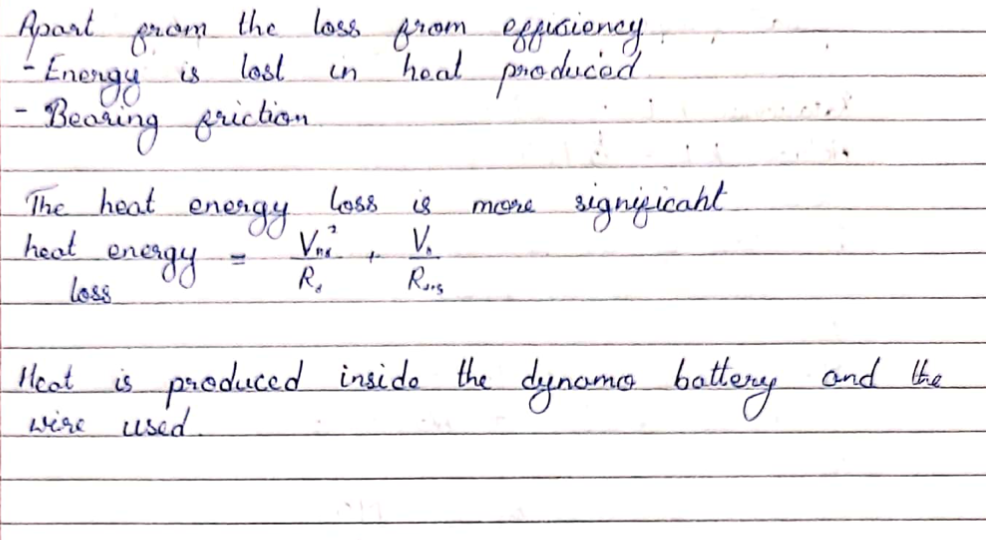 Apart from the loss from effusiency.
- Energy is lost in heat produced
- Bearing friction
The heat energy loss is more significant
heat energy loss = V² / R + V / R
Heat is produced inside the dynamo battery and the
wire used.